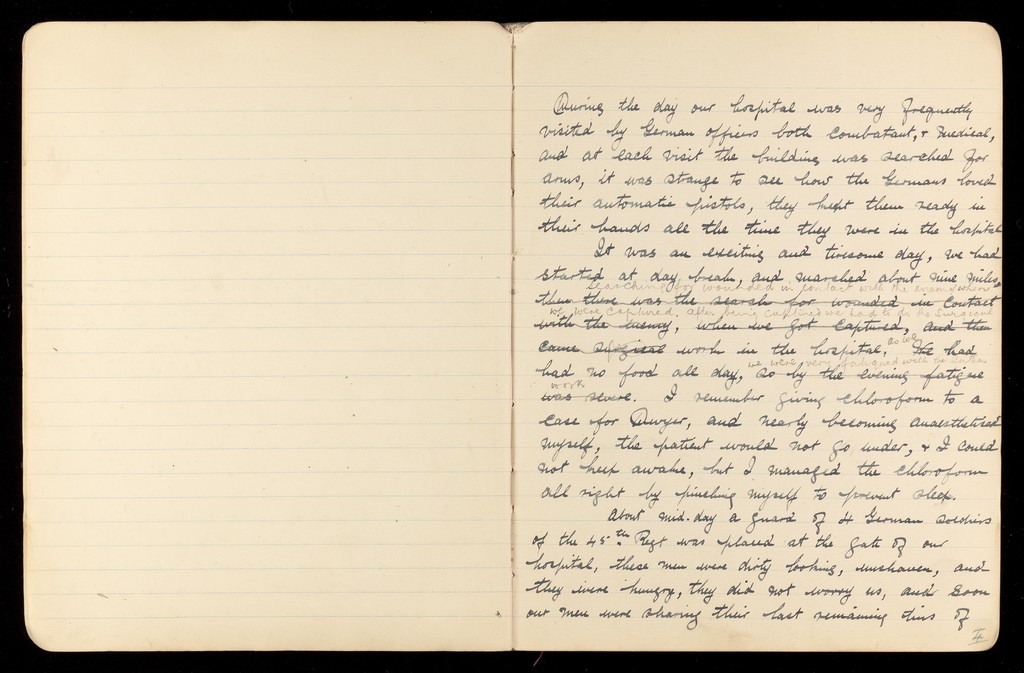 During the day our hospital was very frequently
visited by German officers both combatant, & medical,
and at each visit the building was searched for
arms, it was strange to see how the Germans loved
their automatic pistols, they kept them ready in
their hands all the time they were in the hospital
It was an exciting and tiresome day, we had
started at day break, and marched about nine miles,
searching for wounded in contact with the enemy when
then there was the search for wounded in contact
we were captured. After being captured we had to do the surgical
with the enemy, when we got captured, and then
came surgical work in the hospital, We had
as we
had no food all day, so by the evening fatigue
we were very fatigued with
work
was severe. I remember giving chloroform to a
case for Dwyer, and nearly becoming anaesthetised
myself, the patient would not go under, & I could
not keep awake, but I managed the chloroform
all right by pinching myself to prevent sleep.
About mid-day a guard of 4 German soldiers
of the 45th Regt was placed at the gate of our
hospital, these men were dirty looking, unshaven, and
they were hungry, they did not worry us, and soon
our men were sharing their last remaining tins of